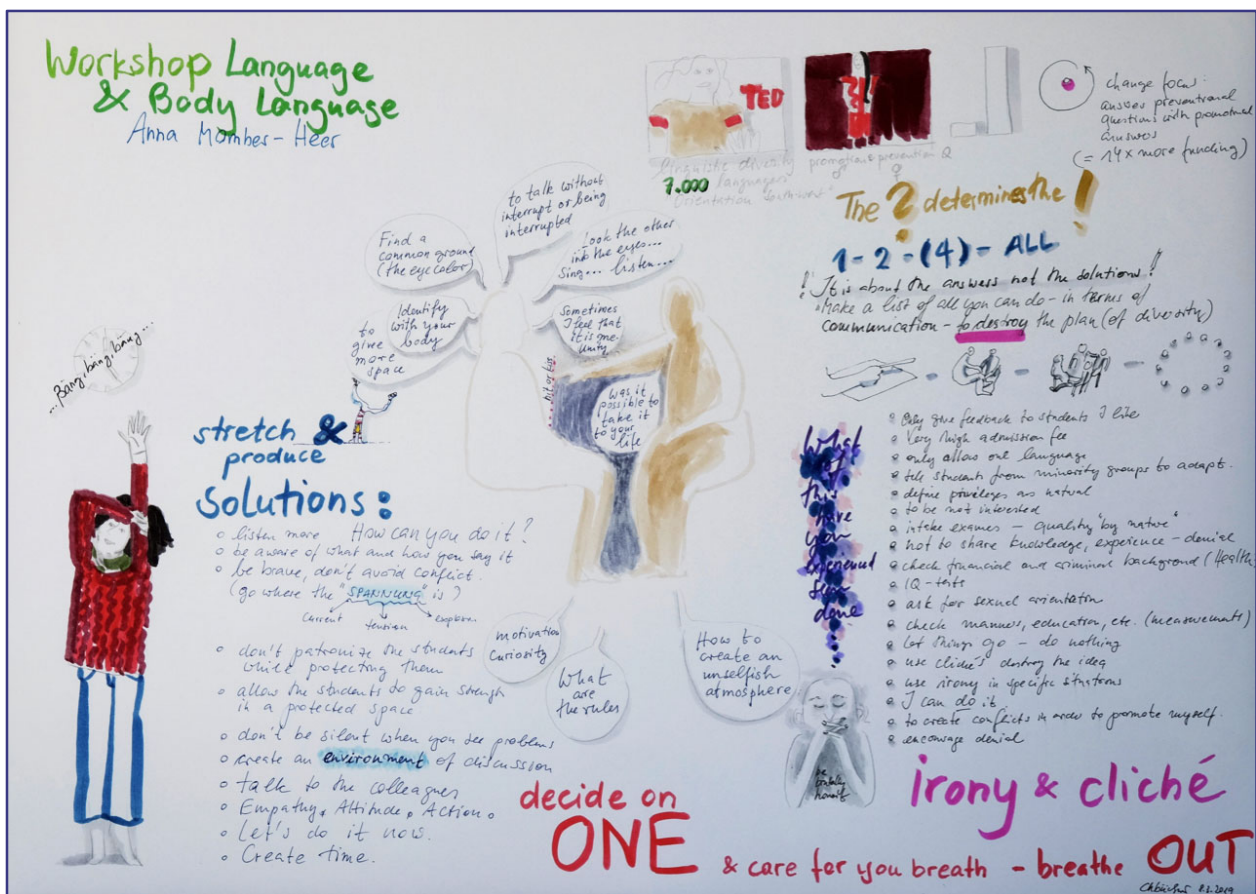 Workshop Language
& Body Language
Anna Momber-Heer
TED
"linguistic diversity
7.000 languages
Orientation
promotion & prevention Q
change focus:
answer preventional
questions with promotional
answer
(= 14x more funding)
The ? determines the !
1 - 2 - (4) - ALL
! It is about the answers not the solutions!
Make a list of all you can do - in terms of
communication - to destroy the plan (of diversity)
to talk without
interrupt or being
interrupted
Find a
common ground
(the eye color)
Look the other
into the eyes...
Sing... listen...
Identify
with your
body
Sometimes
I feel that
it is me.
Unity
to
give
more
space
was it
possible to
take it
to your
life
...Bang, bang, bang...
stretch &
produce
solutions:
listen more How can you do it?
be aware of what and how you say it
be brave, don't avoid conflict.
(go where the "SPANNUNG" is)
current tension
don't patronize the students
while protecting them
allow the students to gain strength
in a protected space
don't be silent when you see problems
create an environment of discussion
talk to the colleagues
Empathy, Attitude, Action.
Let's do it now.
Create time.
motivation
Curiosity
What
are
the rules
How to
create an
unselfish
atmosphere
What
of
this
have
you
experienced
seen
done
Only give feedback to students I like
Very high admission fee
only allow one language
tell students from minority groups to adapt.
define privileges as natural
to be not interested
intake exames - quality "by nature"
not to share knowledge, experience - denial
check financial and criminal background (Health)
IQ-tests
ask for sexual orientation
check manners, education, etc. (measurements)
let things go - do nothing
use clichés destroy the idea
use irony in specific situations
I can do it
to create conflicts in order to promote myself.
encourage denial
irony & cliché
decide on
ONE & care for you breath - breathe OUT